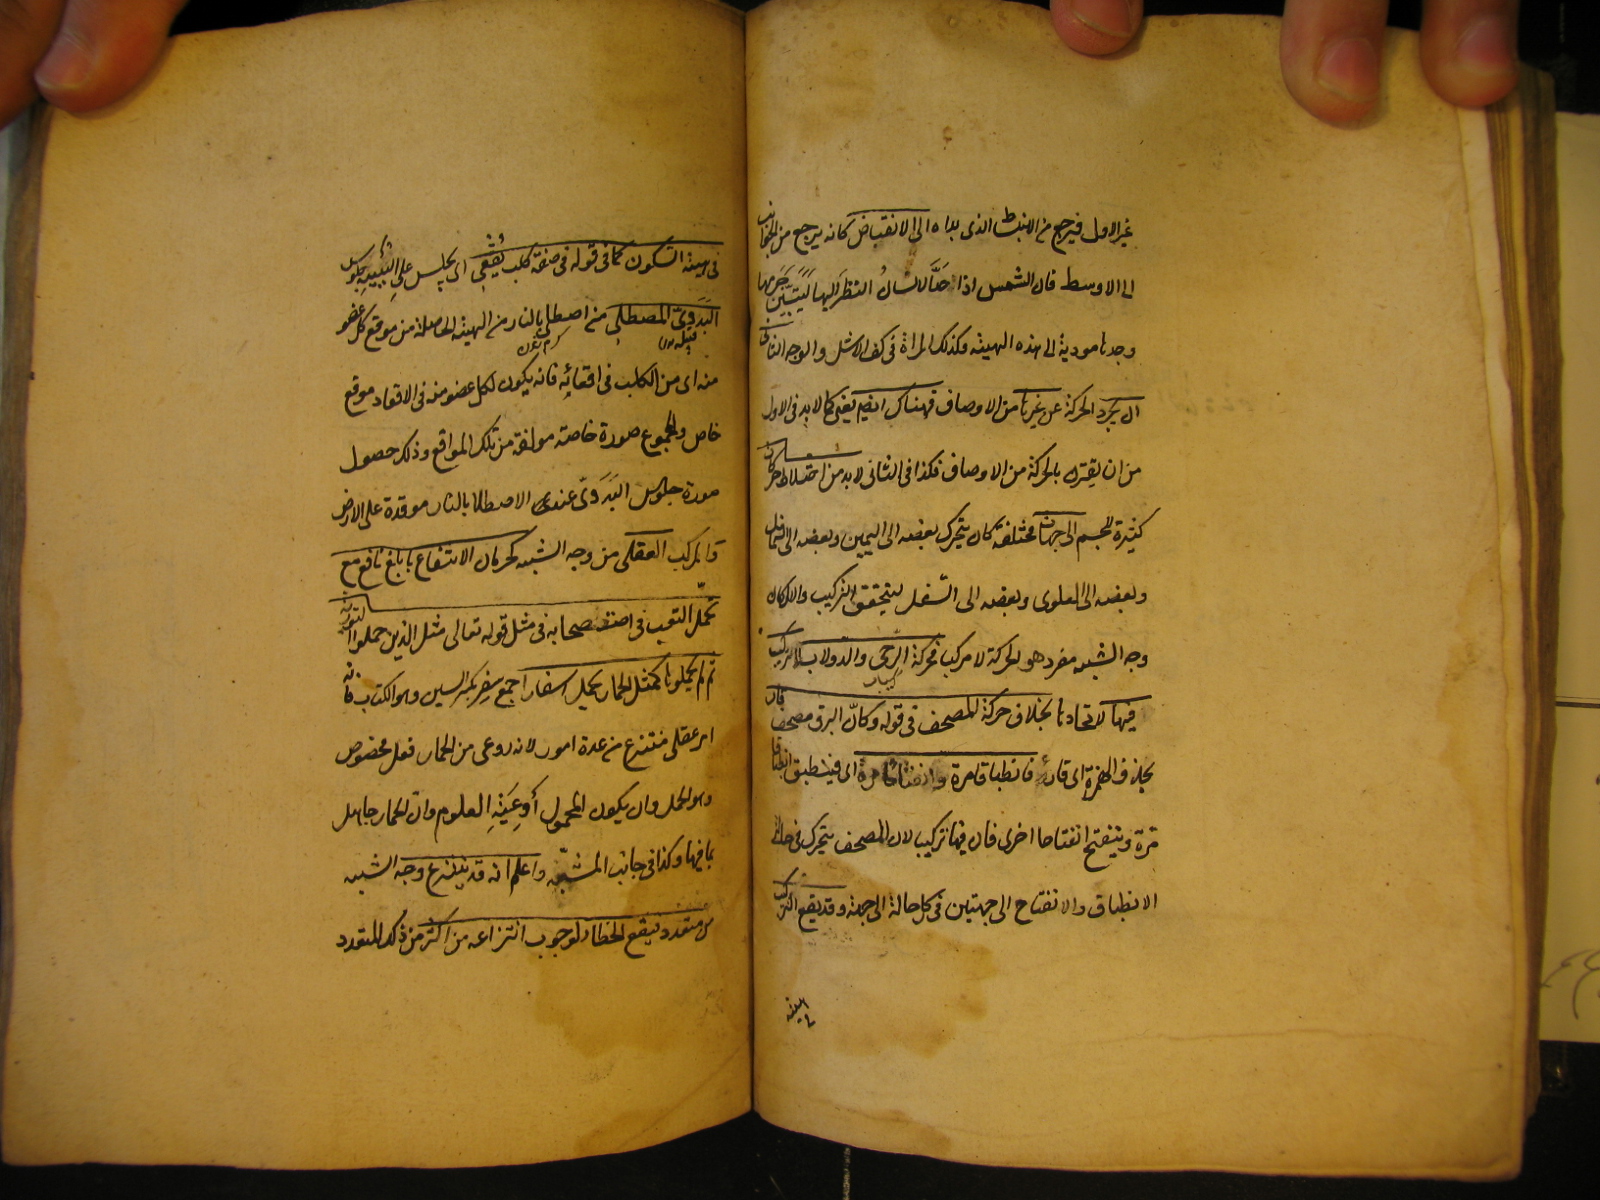 غير الاول فيرجع من الانبساط الذى بداه الى الانقباض كانه يرجع من الجوانب
الى الاوسط فان الشمس اذا احدّ الانسان النظر اليها ليتبيّن جرمها
وجدها مودية الى هذه الهيئة وكذلك المراة فى كف الاشل والوجه الثانى
ان يجرّد الحركة عن غيرها من الاوصاف فهناك ايضا يعنى كما لابد فى الاول
من ان يقترن بالحركة من الاوصاف فكذا فى الثانى لابد من اختلاط حركات
كثيرة للجسم الى جهات مختلفة كان يتحرك بعضه الى اليمين وبعضه الى الشمال
وبعضه الى العلوى وبعضه الى السفل ليتحقق التركيب والا لكان
وجه الشبه مفردا هو الحركة لا مركبا فحركة الرحى والدولاب لا تركيب
فيها لاتحادها بخلاف حركة المصحف فى قوله وكانّ البرق مصحف قار
بحذف الهمزة اى قارئ فانطباقا مرة وانفتاحا مرة اى فينطبق انطباقا
مرة وينفتح انفتاحا اخرى فان فيها تركيب لان المصحف يتحرك فى حالتى
الانطباق والانفتاح الى جهتين فى كل حالة الى جهة وقد يقع التركيب
فى هيئة السكون كما فى قوله فى صفة كلب يُقْعِى اى يجلس على اليتيه جلوس
البَدَوىّ المصطلى من اصطلى بالنار من الهيئة الحاصلة من موقع كل عضو
منه اى من الكلب فى اقعائه فانه يكون لكل عضو منه فى الاقعاء موقع
خاص وللمجموع صورة خاصة مولفة من تلك المواقع وذلك حصول
صورة جلوس البَدَوىّ عند الاصطلاء بالنار موقدة على الارض
والمركب العقلى من وجه الشبه كحرمان الانتفاع بابلغ نافع مع
تحمّل التعب فى استصحابه فى مثل قوله تعالى مثل الذين حملوا التورية
ثم لم يحملوها كمثل الحمار يحمل اسفارا جمع سِفر بكسر السين وهو الكتاب فانه
امر عقلى منتزع من عدة امور لانه روعى من الحمار فعل مخصوص
وهو الحمل وان يكون المحمول أوعِيَةِ العلوم وان الحمار جاهل
بما فيها وكذا فى جانب المشبّه واعلم انه قد ينتزع وجه الشبه
من متعدد فيقع الخطأ لوجوب انتزاعه من اكثر من ذلك المتعدد